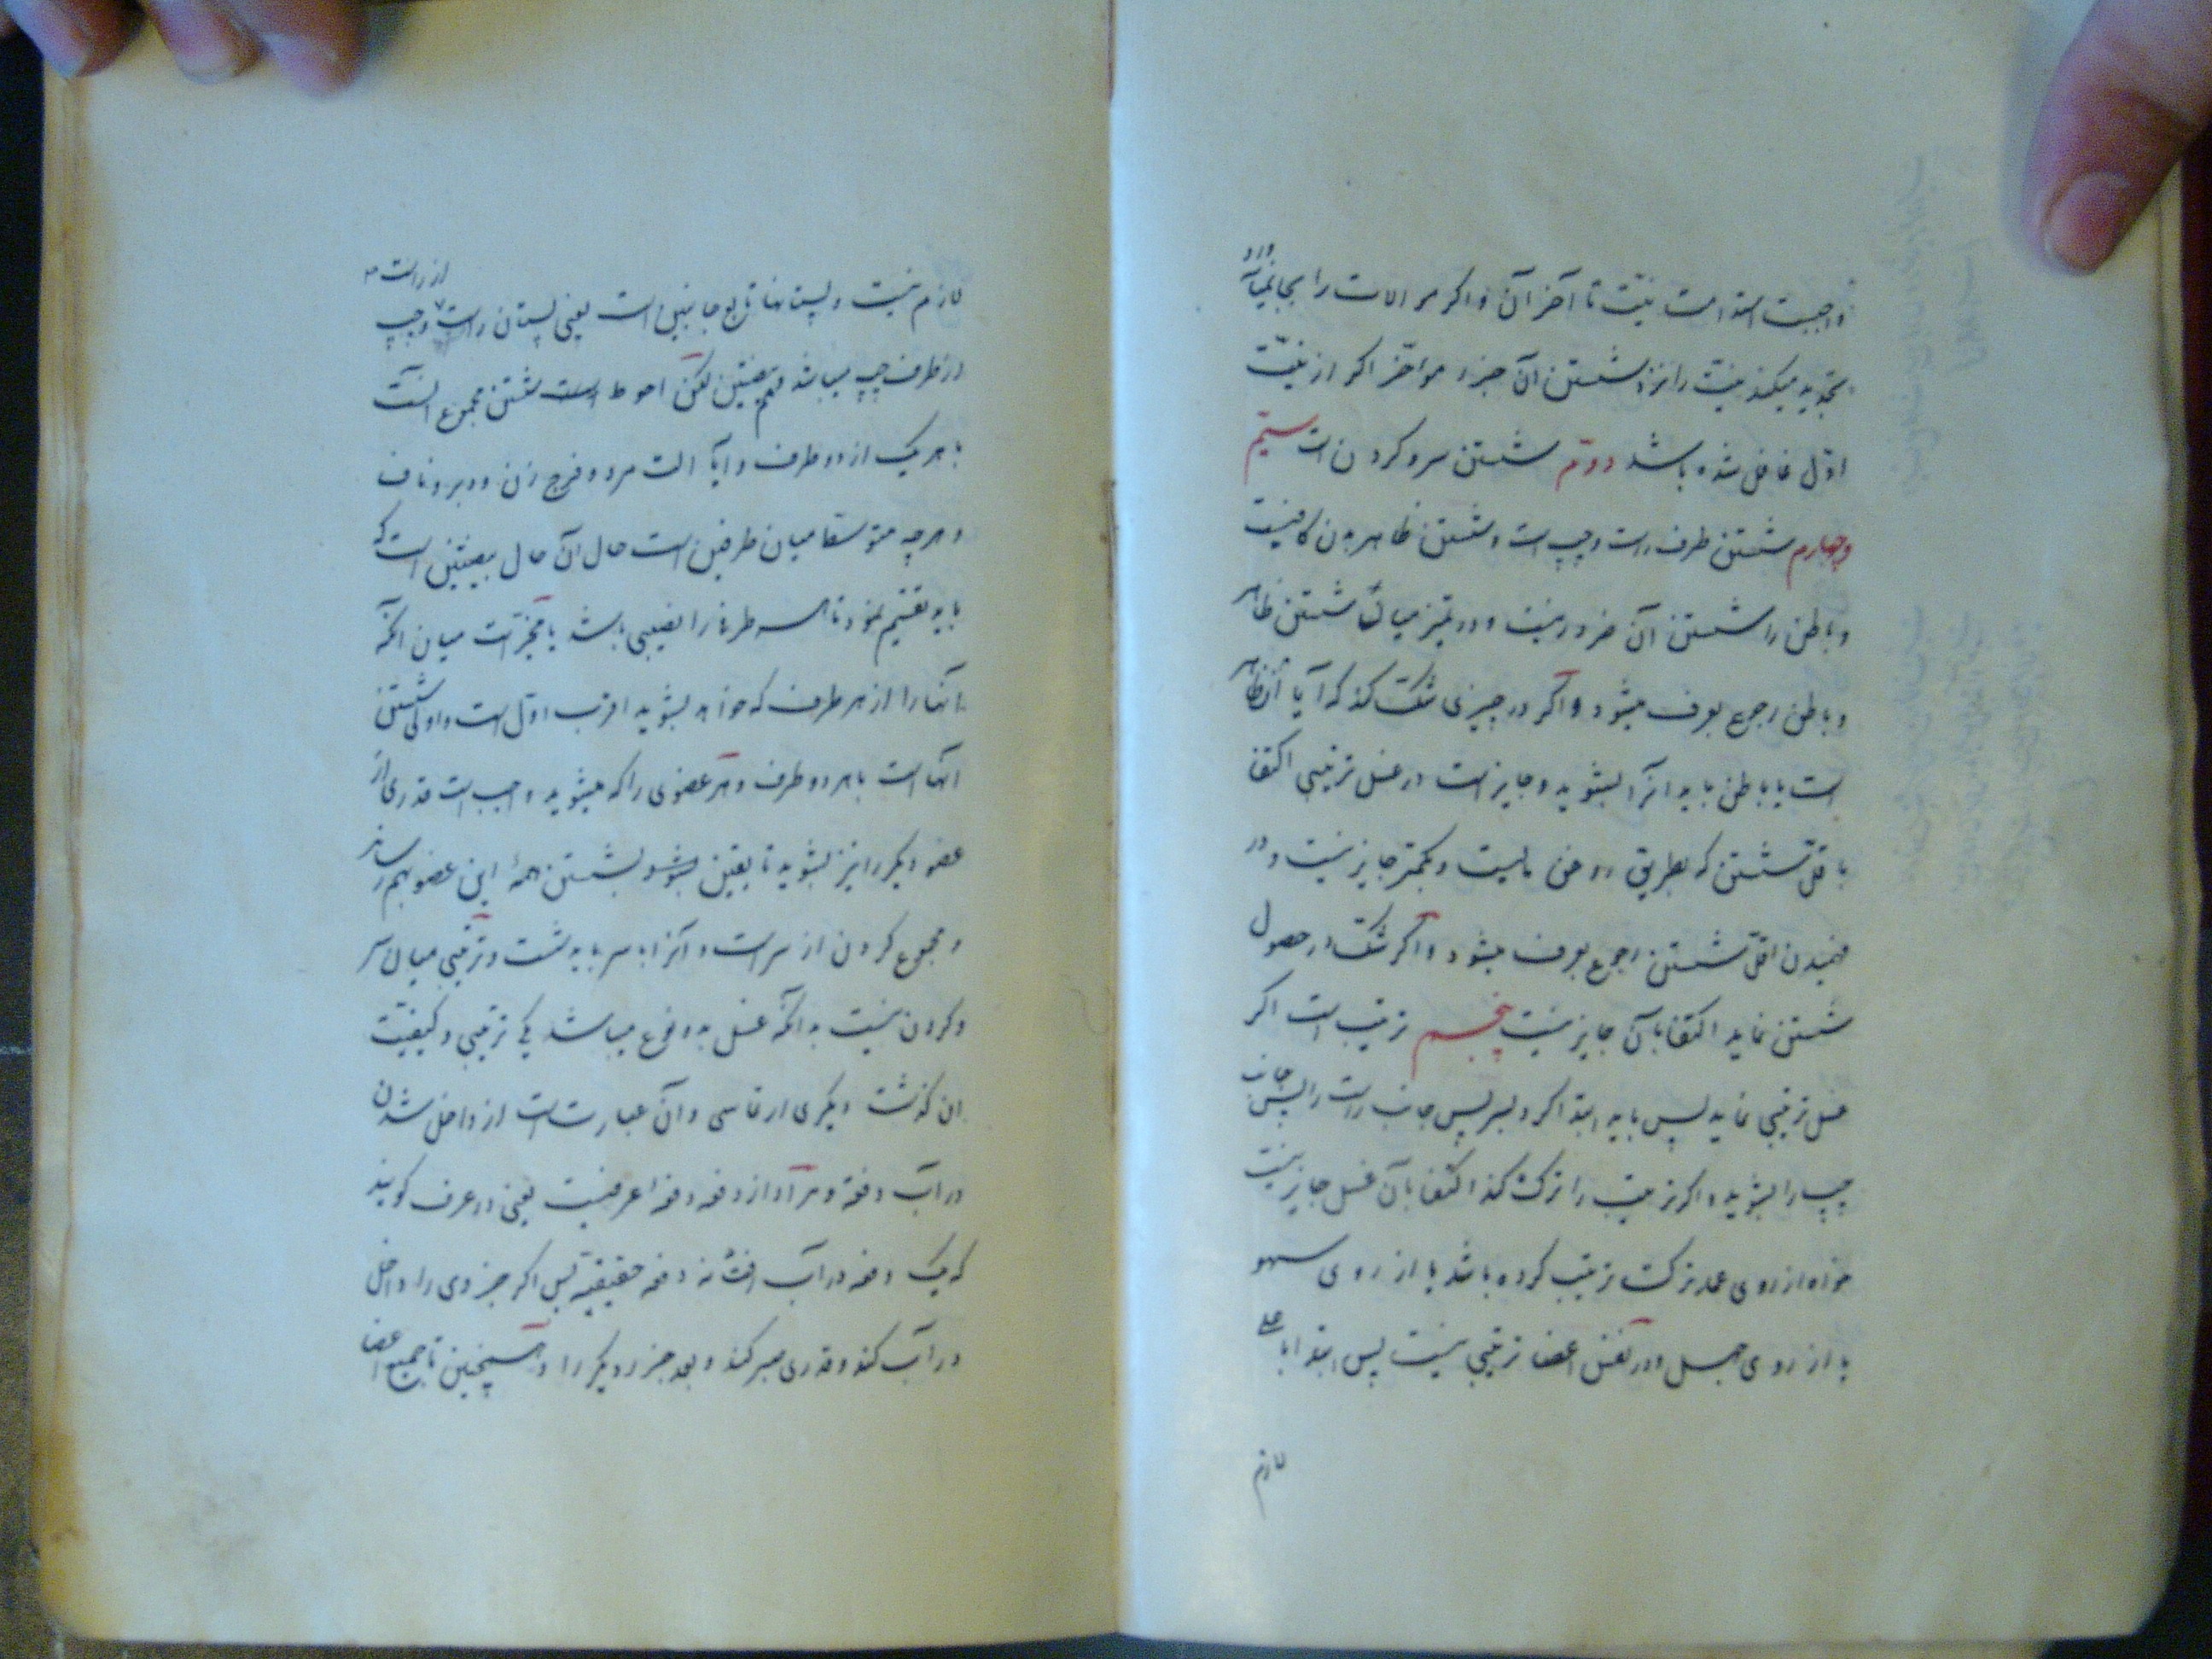 واجبست استدامت نیت تا آخر آن و اگر موالات را بجا نمیآورد
تجدید میکند نیت را نزد شستن آن جزء مؤخر اگر از نیت
اول غافل شده باشد دوّم شستن سر و کردن است سیّم
و چهارم شستن طرف راست و چپ است و شستن ظاهر بدن کافیست
و باطن را شستن آن ضرور نیست و در تمیز میان شستن ظاهر
و باطن رجوع بعرف میشود و اگر در چیزی شک کند که آیا از ظاهر
است یا باطن باید آنرا بشوید و جایز است در غسل ترتیبی اکتفا
با قل شستن که بطریق روغن مالیست و بکمتر جایز نیست و در
فهمیدن اقل شستن رجوع بعرف میشود و اگر شک در حصول
شستن نماید اکتفا بآن جایز نیست پنجم ترتیب است اگر
غسل ترتیبی نماید پس باید ابتدا کرد بسر پس جانب راست را پس جانب
چپ را بشوید و اگر ترتیب را ترک کند اکتفا بآن غسل جایز نیست
خواه از روی عمد ترک ترتیب کرده باشد یا از روی سهو
یا از روی جهل و در نفس اعضا ترتیبی نیست پس ابتدا باعلی
لازم
لازم نیست و پستانها تابع جانبین است یعنی پستان راست از راست و چپ
در طرف چپ میباشد و هم بیضتین لکن احوط است شستن مجموع آنست
با هر یک از دو طرف و ایا آلت مرد و فرج زن و دبر و ناف
و هر چه متوسط میان طرفین است حال آن حال بیضتین است که
باید تقسیم نمود تا هر طرف را نصیبی باشد یا مخیر است میان آنکه
آنها را از هر طرف که خواهد بشوید اقرب اول است و اولی شستن
آنها است با هر دو طرف و هر عضوی را که میشوید واجب است قدری از
عضو دیگر را نیز بشوید تا یقین بشود بشستن همهٔ این عضو بهم رساند
و مجموع کردن از سر است و آنرا با سر باید شست و ترتیبی میان سر
و کردن نیست بدانکه غسل بدو نوع میباشد یکی ترتیبی و کیفیت
ان گذشت دیگری ارتماسی و آن عبارتست از داخل شدن
در آب دفعة و مراد از دفعه دفعه عرفیست یعنی در عرف گویند
که یک دفعه در آب افتاد نه دفعه حقیقیه پس اگر جزوی را داخل
در آب کند و قدری صبر کند و بعد جزء دیگر را و همچنین تا جمیع اعضا